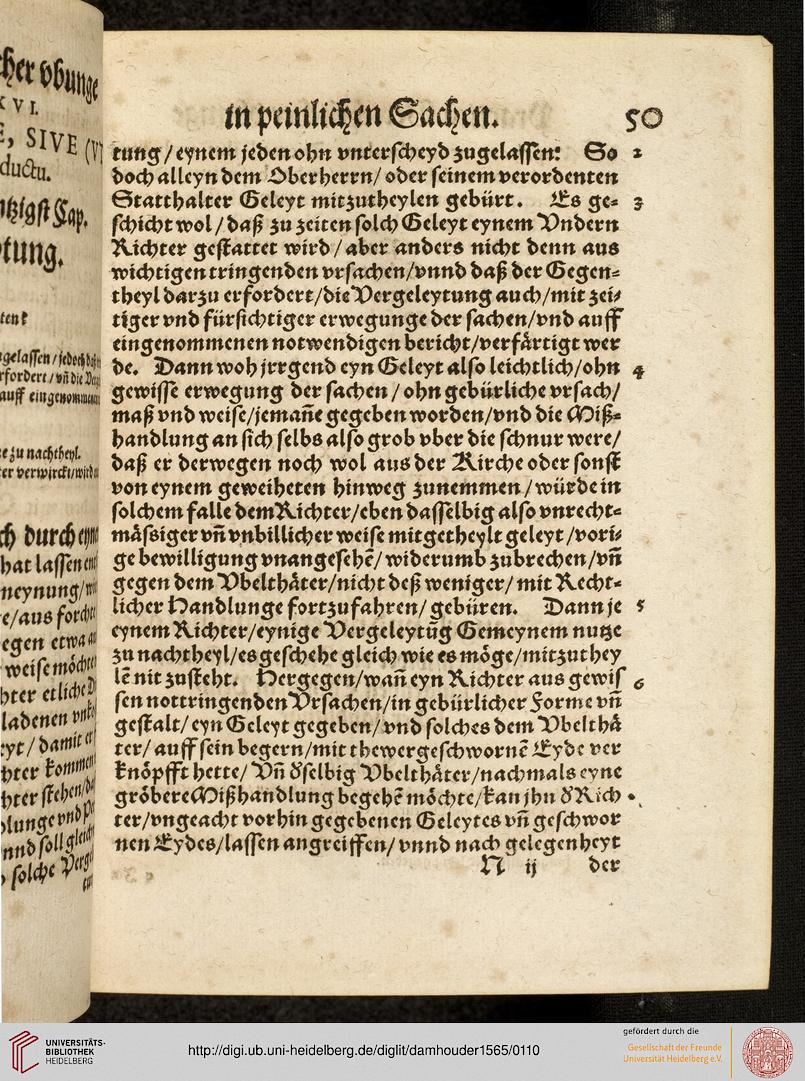 in peinlichen Sachen. 50
tung / eynem jeden ohn vnterscheyd zugelassen: So 2
doch alleyn dem Oberherrn / oder seinem verordenten
Statthalter Geleyt mitzutheylen gebürt. Es ge= 3
schicht wol / daß zu zeiten solch Geleyt eynem Vndern
Richter gestattet wird / aber anders nicht denn aus
wichtigen tringenden vrsachen / vnnd daß der Gegen=
theyl darzu erfordert / die Vergeleytung auch / mit zei=
tiger vnd fürsichtiger erwegunge der sachen / vnd auff
eingenommenen notwendigen bericht / verfärtigt wer
de. Dann woh jrrgend eyn Geleyt also leichtlich / ohn 4
gewisse erwegung der sachen / ohn gebürliche vrsach /
maß vnd weise / jemañe gegeben worden / vnd die Miß=
handlung an sich selbs also grob vber die schnur were /
daß er derwegen noch wol aus der Kirche oder sonst
von eynem geweiheten hinweg zunemmen / würde in
solchem falle dem Richter / eben dasselbig also vnrecht=
mässiger vñ vnbillicher weise mitgetheylt geleyt / vori=
ge bewilligung vnangesehẽ / widerumb zubrechen / vñ
gegen dem Vbelthäter / nicht deß weniger / mit Recht=
licher Handlunge fortzufahren / gebüren. Dann je 5
eynem Richter / eynige Vergeleytũg Gemeynem nutze
zu nachtheyl / es geschehe gleich wie es möge / mitzuthey
lẽ nit zusteht. Hergegen / wañ eyn Richter aus gewis 6
sen nottringenden Vrsachen / in gebürlicher Forme vñ
gestalt / eyn Geleyt gegeben / vnd solches dem Vbelthä
ter / auff sein begern / mit thewergeschwornẽ Eyde ver
knöpfft hette / Vñ d'selbig Vbelthäter / nachmals eyne
gröbere Mißhandlung begehẽ möchte / kan jhn d' Rich
ter / vngeacht vorhin gegebenen Geleytes vñ geschwor
nen Eydes / lassen angreiffen / vnnd nach gelegenheyt
N ij der
cher vbunge
XVI.
E, SIVE (V
ductu.
tzigst Cap.
tung.
gelassen / jedoch
rfordert / vñ die
auff eingenommenen
ze zu nachtheyl.
ter verwirckt / wird
ch durch
hat lassen
meynung /
e / aus
egen etwa
weise möchte
hter etliche
ladenen
eyt / damit
hter kommen
hter stehen /
lunge vnd
nnd soll
solche
UNIVERSITÄTS-
BIBLIOTHEK
HEIDELBERG
http://digi.ub.uni-heidelberg.de/diglit/damhouder1565/0110
gefördert durch die
Gesellschaft der Freunde
Universität Heidelberg e.V.